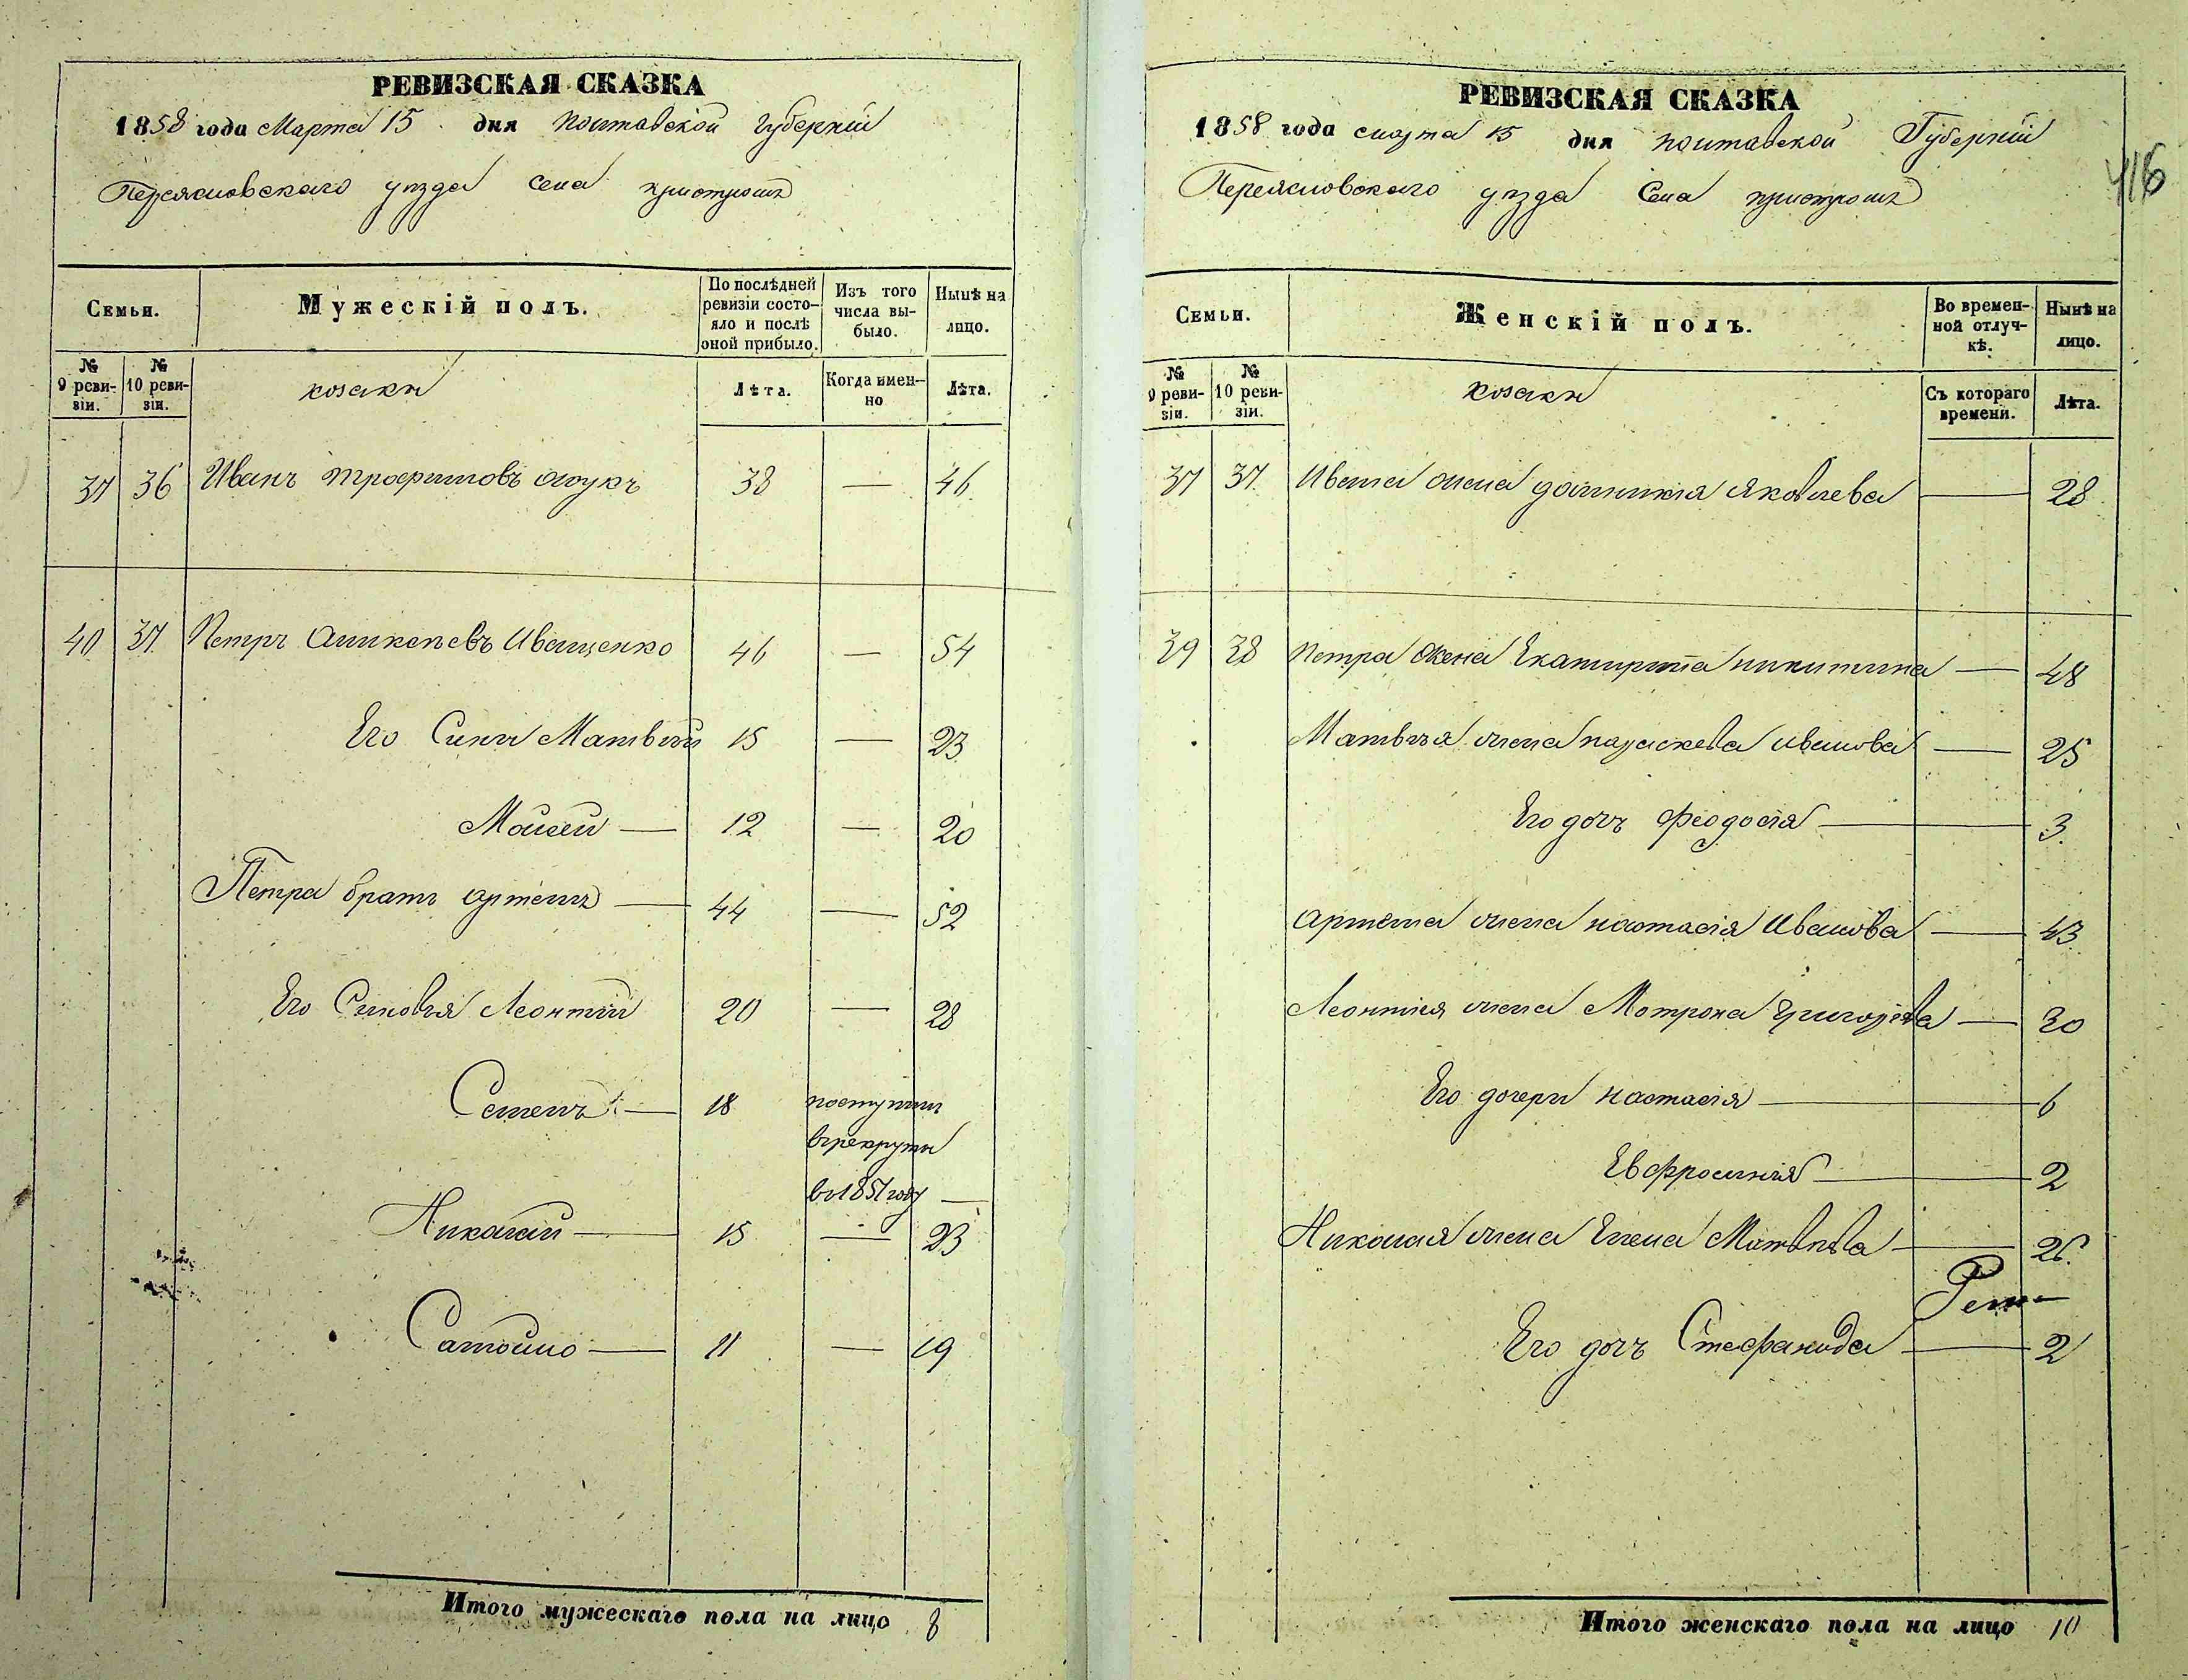 РЕВИЗСКАЯ СКАЗКА
1858 года Марта 15 дня Полтавской Губернии
Переясловского уезда Села пристромъ
Семьи.
Мужескій полъ.
По послѣдней ревизіи состояло и послѣ оной прибыло.
Изъ того числа выбыло.
Нынѣ на лицо.
№ 9 ревизіи.
№ 10 ревизіи.
козаки
Лѣта.
Когда именно
Лѣта.
37 36 Иванъ Трофимовъ 38 — 46
40 37 Петръ Аликсѣевъ Иващенко 46 — 54
Его Синъ Матвѣй 15 — 23
Моисей — 12 — 20
Петра братъ Артемъ — 44 — 52
Его Синовья Леонтій 20 — 28
Семенъ — 18 поступил
врекруты
в 1851 году —
Николай — 15 — 23
Самойло — 11 — 19
Итого мужескаго пола на лицо 8
РЕВИЗСКАЯ СКАЗКА
1858 года марта 15 дня полтавской Губерніи
Переясловского уезда Села пристромъ
416
Семьи.
Женскій полъ.
Во временной отлучкѣ.
Нынѣ на лицо.
№ 9 ревизіи.
№ 10 ревизіи.
козаки
Съ котораго времени.
Лѣта.
37 37 Ивана жена домникія Яковлева — 28
39 38 Петра Жена Екатирина никитина — 48
Матвѣя жена параскева Иванова — 25
Его дочъ феодосія — 3
Артема жена настасія Иванова — 43
Леонтія жена Мотрона Григорьева — 30
Его дочери настасія — 6
Евфросинія — 2
Николая жена Елена Матвѣева — 26
Его дочъ Стефанида — 2
Итого женскаго пола на лицо 10